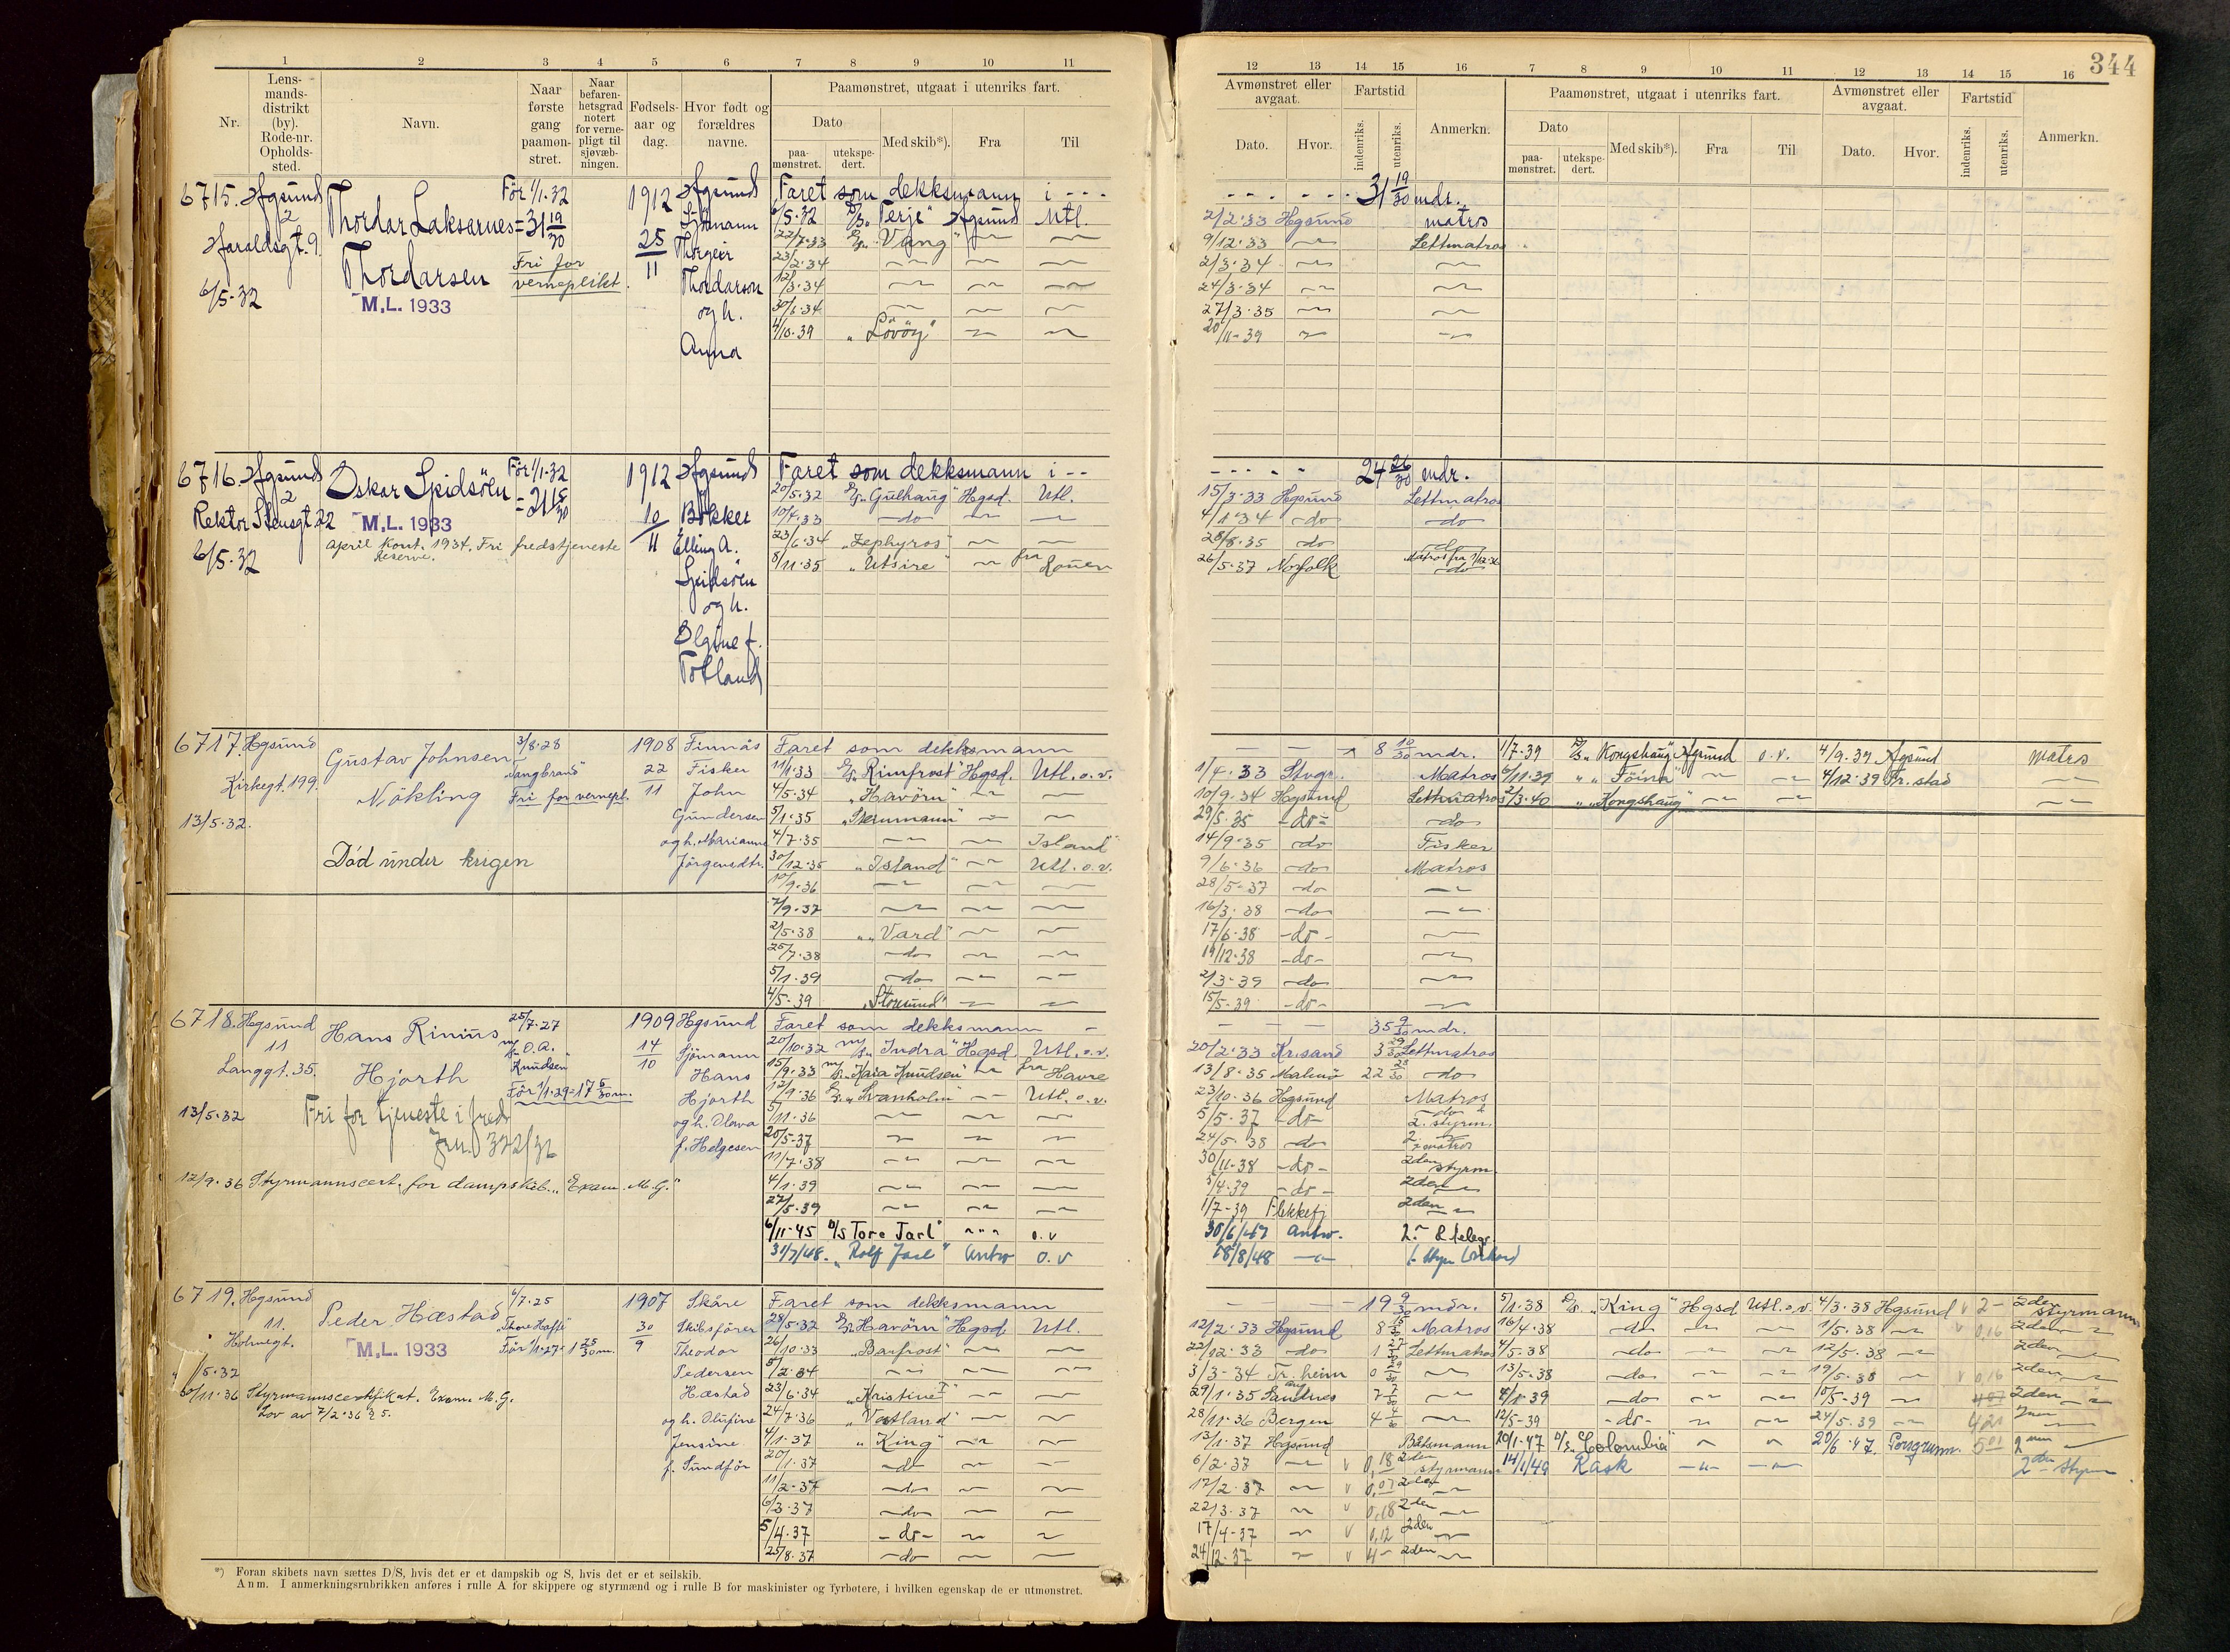 344
1 2 3 4 5 6 7 8 9 10 11
Nr.
Lens-
mands-
distrikt
(by).
Rode-nr.
Opholds-
sted.
Navn.
Naar
første
gang
paamøn-
stret.
Naar
befaren-
hetsgrad
notert
for verne-
pligt til
sjøvæb-
ningen.
Fødsels-
aar og
dag.
Hvor født og
forældres
navne.
Paamønstret, utgaat i utenriks fart.
Dato
paa-
mønstret.
utekspe-
dert.
Med skib*).
Fra
Til
12 13 14 15 16 7 8 9 10 11 12 13 14 15 16
Avmønstret eller
avgaat.
Dato.
Hvor.
Fartstid
indenriks.
utenriks.
Anmerkn.
Paamønstret, utgaat i utenriks fart.
Dato
paa-
mønstret.
utekspe-
dert.
Med skib*).
Fra
Til
Avmønstret eller
avgaat.
Dato.
Hvor.
Fartstid
indenriks.
utenriks.
Anmerkn.
6715. Hgsund
2
Haraldsgt. 9.
6/5-32
Thordar Laksarnes
Thordarsen
M.L. 1933
Før 1/1-32
= 31 19/30
Fri for
verneplikt.
1912
25
11
Hgsund
Sjömann
Thorgeir
Thordarson
og h.
Anna
Faret som dekksmann i ---
6/5-32 D/S „Terje" Hgsund Utl.
22/7-33 „Vang"
23/2-34
12/3-34
30/6-34
4/10-39 „Lövöy"
31 19/30 mdr.
2/2-33 Hgsund matros
9/12-33 Lettmatros
2/3-34
24/3-34
27/3-35
20/11-39
6716. Hgsund
2
Rektor Stensgt 22
6/5-32
Oskar Spidsöen
M.L. 1933
April Kont. 1934. Fri fredstjeneste
reserve.
Før 1/1-32
1912
10
11
Hgsund
Bökker
Elling A.
Spidsöen
og h.
Olgine f.
Totland
Faret som dekksmann i --
20/5-32 „Gulhaug" Hgsd. Utl.
10/4-33 -do-
23/6-34 „Zephyros"
8/11-35 „Utsire" fra Rouen
24 26/30 mdr.
15/3-33 Hgsund Lettmatros
4/1-34 -do- -do-
28/8-35 do
26/5-37 Norfolk -do-
6717. Hgsund
Kirkegt. 199.
13/5-32.
Gustav Johnsen
Nökling
Død under krigen
3/8-28
„Vangbrand"
Fri for vernepl.
1908
22
11
Finnås
Fisker
John
Gundersen
og h. Marianne
Jörgensdtr.
Faret som dekksmann
11/1-33 „Rimfrost" Hgsd. Utl. o.v.
4/5-34 „Havörn"
5/1-35
4/7-35 Island
30/12-35 „Island" Utl. o.v.
10/9-36
7/9-37
2/5-38 „Vard"
25/7-38 -do-
5/1-39 -do-
4/5-39 „Storsund"
8 10/30 mdr.
1/4-33 Stvgr. Matros
10/9-34 Hgsund Lettmatros
29/5-35 -do- -do-
14/9-35 -do- Fisker
9/6-36 -do- Matros
28/5-37 -do-
16/3-38 -do-
17/6-38 -do-
19/12-38 -do-
2/3-39 -do-
15/5-39 -do-
1/7-39 D/S „Kongshaug" Hgsund o.v. 4/9-39 Hgsund Matros
6/11-39 „Töira" 4/12-39 Fr.stad
2/3-40 „Kongshaug"
6718. Hgsund
11
Langgt. 35.
13/5-32
Hans Rinius
Hjorth
Fri for tjeneste i fred
Jnr. 322/32
25/7-27
O.A.
Knudsen
Før 1/1-29 = 17 5/30 m.
1909
14
10
Hgsund
Sjömann
Hans
Hjorth
og h. Olava
f. Helgesen
12/9-36 Styrmannscert. for dampskib. „Exam. M.G."
Faret som dekksmann -
20/10-32 „Indra" Hgsd. Utl. o.v.
15/9-33 „Kaia Knudsen" fra Havre
12/9-36 „Svanholm" Utl. o.v.
5/11-36
25/5-37
11/7-38
4/1-39
27/5-39
6/11-45 D/S Tore Jarl" o.v
31/7/48. „Rolf Jarl" Antw o.v
35 9/30 mdr.
20/2-33 Kr.sand 3 29/30 Lettmatros
13/8-35 Malmö 22 28/30 do
23/10-36 Hgsund Matros
5/5-37 -do- 2. styrm.
24/5-38 -do-
30/11-38 -do- 2den styrm.
5/4-39 -do- 2den
1/7-39 Flekkefj 2den
30/6/47 Antw.
18/8/48
6719. Hgsund
11.
Holvegt.
/5-32
Peder Hæstad
M.L. 1933
6/7-25
Før 1/1-27 = 1 25/30 m.
1907
30
9
Skåre
Skibsförer
Theodor
Pedersen
Hæstad
og h. Olufine
Jensine
f. Sundför
30/11-36 Styrmannscertifikat. Exam. M.G.
Lov av 7/2-36 § 5.
Faret som dekksmann
28/5-32 „Havörn" Hgsd. Utl.
26/10-33 „Barfrost"
5/2-34
23/6-34 „Kristine I"
24/7-36 „Vestland"
4/1-37 „King"
20/1-37 -do-
11/2-37 -do-
6/3-37 -do-
5/4-37 -do-
25/8-37 -do-
19 9/30 mdr.
12/2-33 Hgsund 8 Matros
22/12-33 -do- 1 27/30 Lettmatros
3/3-34 Tr.heim 0 29/30
29/1-35 Sandnes 7 7/30
28/11-36 Bergen 4 4/30
13/1-37 Hgsund Båtsmann
6/2-37 0,18 2den styrmann
17/2-37 0,07 2den
22/3-37 0,18 2den
17/4-37 0,12 2den
24/12-37 4- 2den
5/1-38 D/S „King" Hgsd Utl. o.v. 4/3-38 Hgsund 2- 2den styrmann
16/4-38 -do- 1/5-38 0,16 2den
4/5-38 -do- 12/5-38 2den
13/5-38 -do- 19/5-38 0,16 2den
4/1-39 -do- 10/5-39 2den
12/5-39 -do- 24/5-39
20/1-47 D/S „Colombia" 20/6-47 Porsgrunn. 5 01
14/1/49 Rask 2den styrm
*) Foran skibets navn sættes D/S, hvis det er et dampskib og S, hvis det er et seilskib.
Anm. I anmerkningsrubrikken anføres i rulle A for skippere og styrmænd og i rulle B for maskinister og fyrbøtere, i hvilken egenskap de er utmønstret.